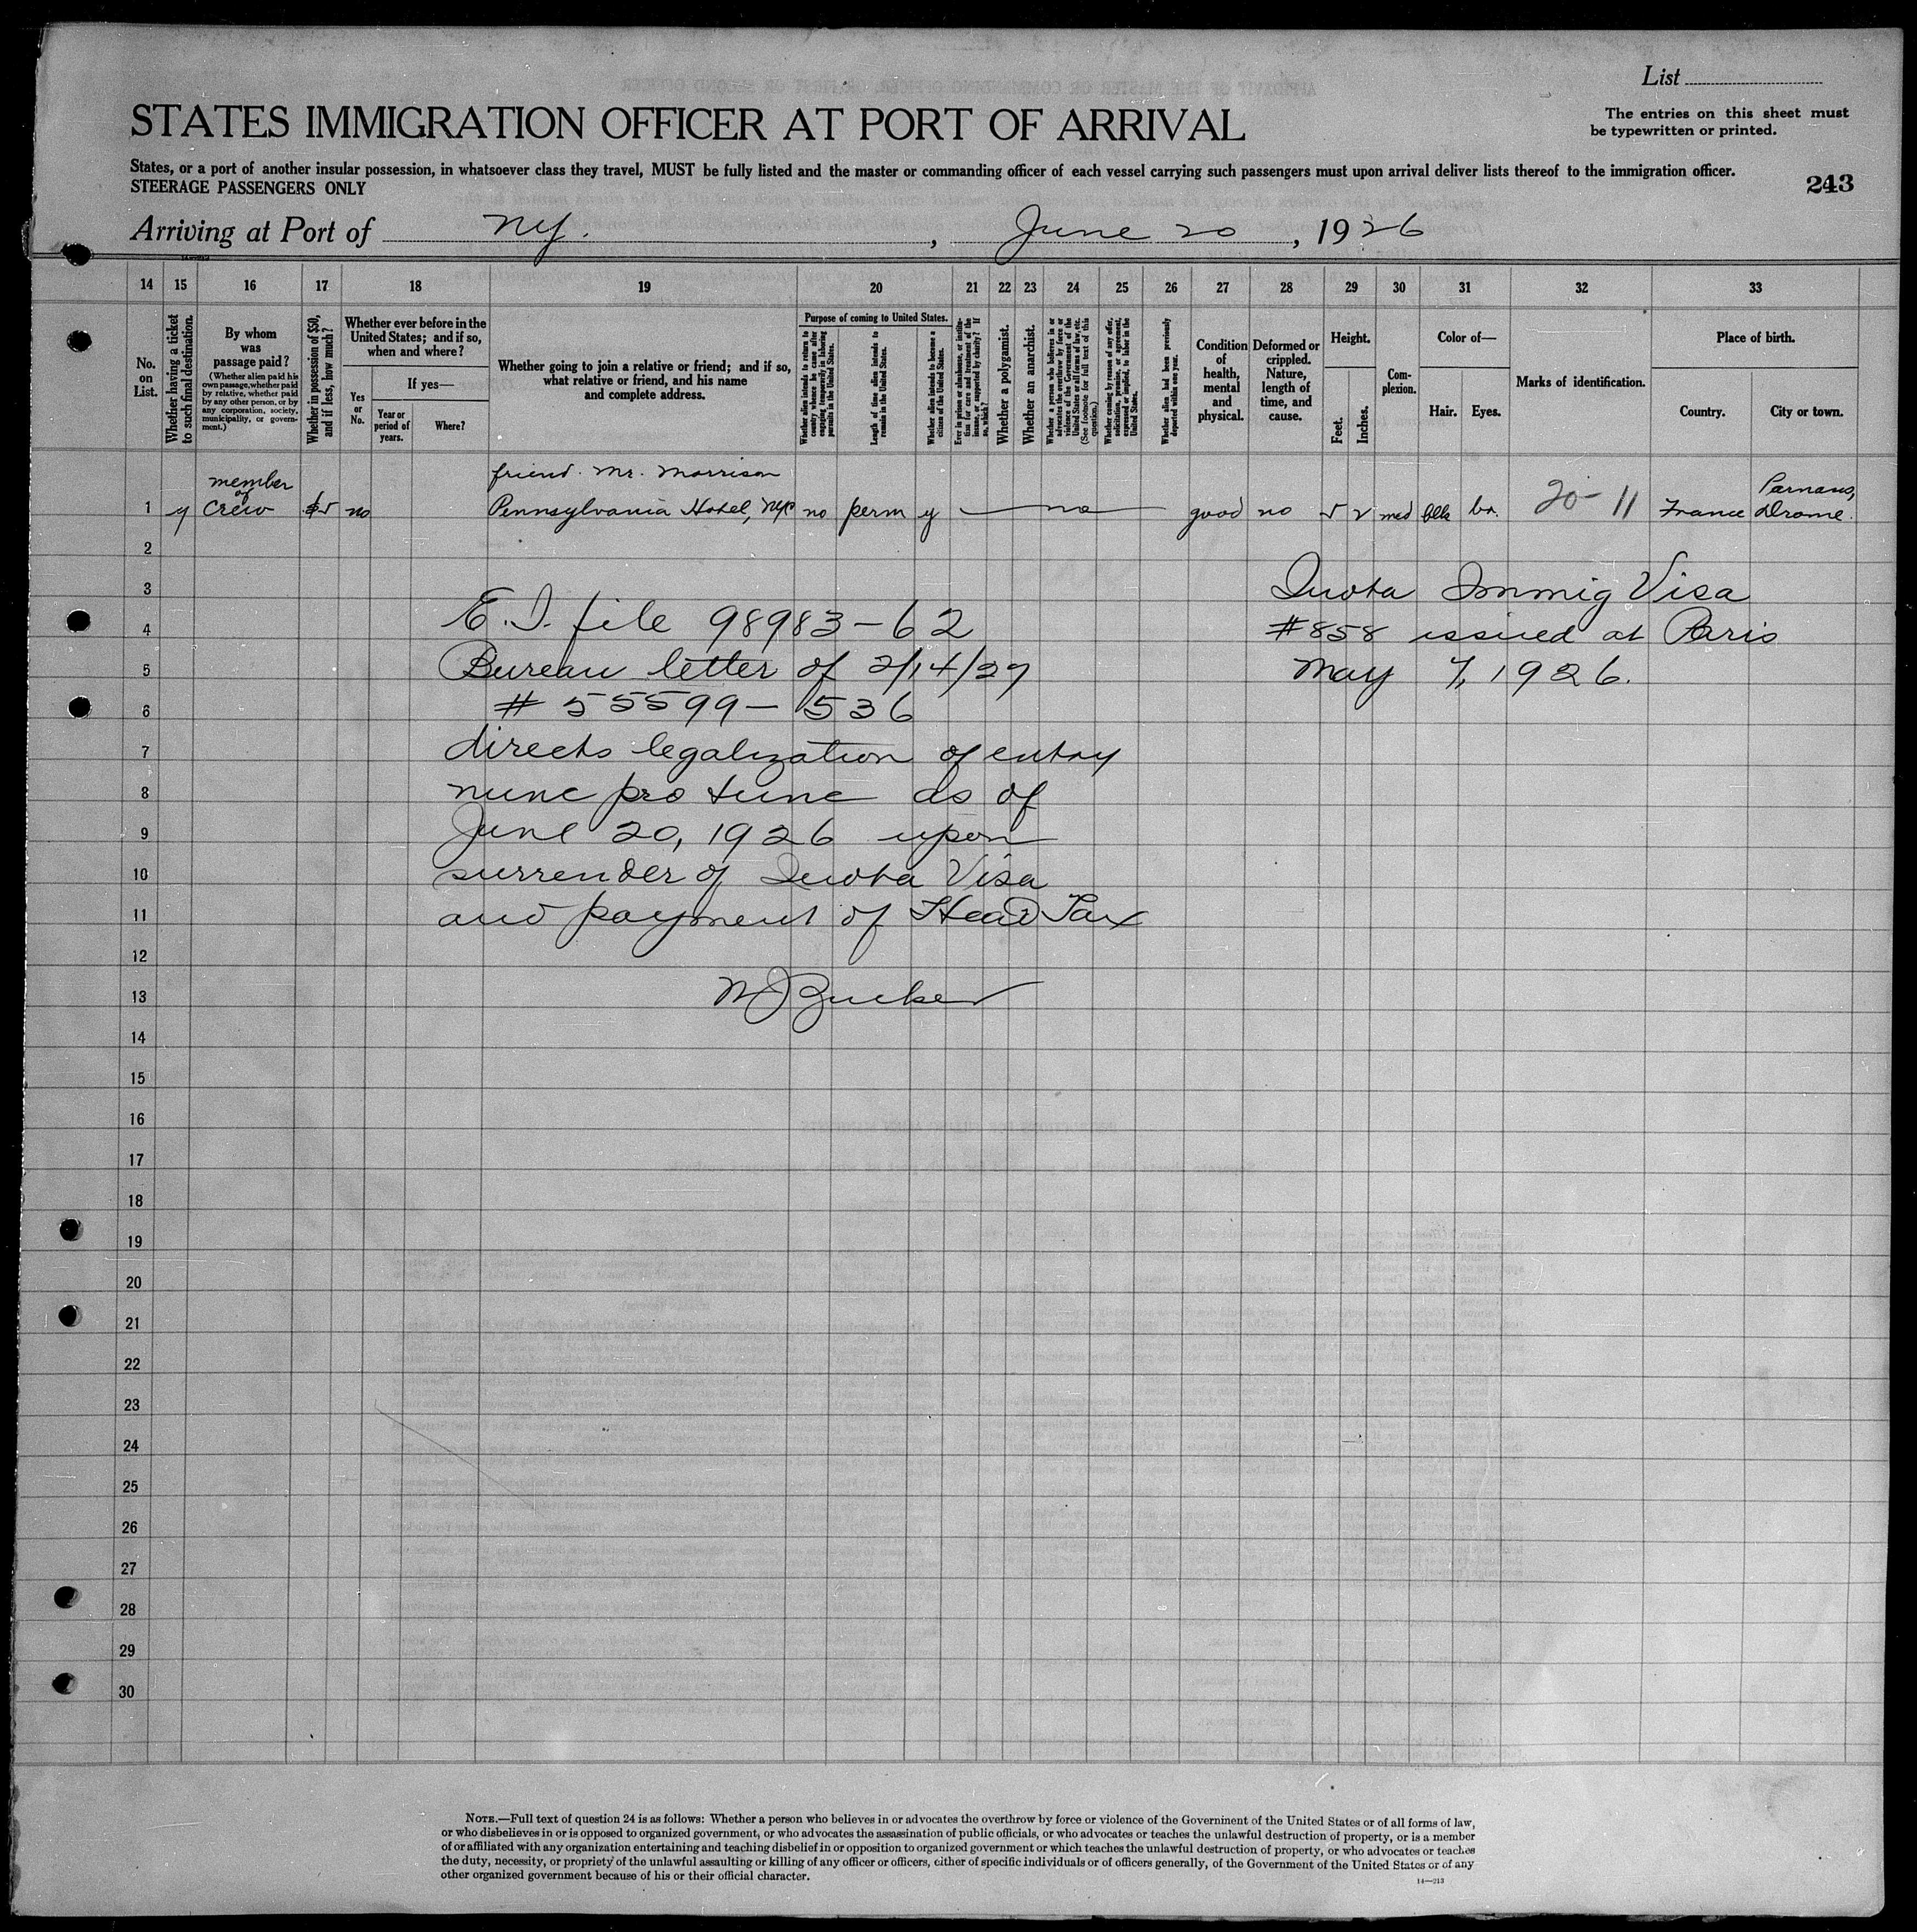 List
STATES IMMIGRATION OFFICER AT PORT OF ARRIVAL
The entries on this sheet must
be typewritten or printed.
States, or a port of another insular possession, in whatsoever class they travel, MUST be fully listed and the master or commanding officer of each vessel carrying such passengers must upon arrival deliver lists thereof to the immigration officer.
STEERAGE PASSENGERS ONLY
243
Arriving at Port of NY. , June 20 , 1926
14 15 16 17 18 19 20 21 22 23 24 25 26 27 28 29 30 31 32 33
No. on List.
Whether having a ticket to such final destination.
By whom was passage paid?
(Whether alien paid his own passage, whether paid by relative, whether paid by any other person, or by any corporation, society, municipality, or government.)
Whether in possession of $50, and if less, how much?
Whether ever before in the United States; and if so, when and where?
Yes or No.
If yes—
Year or period of years.
Where?
Whether going to join a relative or friend; and if so, what relative or friend, and his name and complete address.
Purpose of coming to United States.
Whether alien intends to return to country whence he came after engaging temporarily in laboring pursuits in the United States.
Length of time alien intends to remain in the United States.
Whether alien intends to become a citizen of the United States.
Ever in prison or almshouse, or institution for care and treatment of the insane, or supported by charity? If so, which?
Whether a polygamist.
Whether an anarchist.
Whether a person who believes in or advocates the overthrow by force or violence of the Government of the United States or all forms of law, etc. (See footnote for full text of this question.)
Whether coming by reason of any offer, solicitation, promise, or agreement, expressed or implied, to labor in the United States.
Whether alien had been previously deported within one year.
Condition of health, mental and physical.
Deformed or crippled. Nature, length of time, and cause.
Height.
Feet.
Inches.
Complexion.
Color of—
Hair.
Eyes.
Marks of identification.
Place of birth.
Country.
City or town.
member friend. Mr. Morrison Parnans,
1 y of crew $5 no Pennsylvania Hotel, NYC no perm y no good no 5 2 med blk br. 20- 11 France Drome.
2
3 Quota Immig Visa
E.I. file 98983-62
4 #858 issued at Paris
5 Bureau letter of 2/14/27 May 7, 1926.
6 # 55599-536
7 directs legalization of entry
8 nunc pro tunc as of
9 June 20, 1926 upon
10 surrender of Quota Visa
11 and payment of Head Tax
12
13 Zucker
14
15
16
17
18
19
20
21
22
23
24
25
26
27
28
29
30
NOTE.—Full text of question 24 is as follows: Whether a person who believes in or advocates the overthrow by force or violence of the Government of the United States or of all forms of law,
or who disbelieves in or is opposed to organized government, or who advocates the assassination of public officials, or who advocates or teaches the unlawful destruction of property, or is a member
of or affiliated with any organization entertaining and teaching disbelief in or opposition to organized government or which teaches the unlawful destruction of property, or who advocates or teaches
the duty, necessity, or propriety of the unlawful assaulting or killing of any officer or officers, either of specific individuals or of officers generally, of the Government of the United States or of any
other organized government because of his or their official character.
14—213